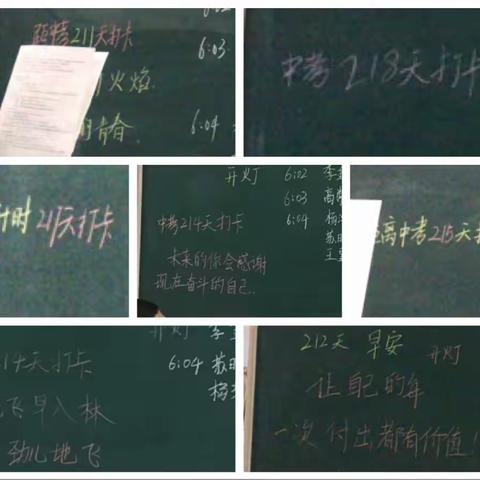 6:02
距中考211天打卡
6:03
火焰
青春
6:04
中考218天打卡
计时 211天打卡
开灯 6:02 李
6:03 高
6:04 杨
苏
王
中考214天打卡
未来的你会感谢
现在奋斗的自己.
离中考215天打
开灯 李
天打卡
6:04 苏
杨
飞早入林
劲儿地飞
212天 早安
开灯
让自己的每
一次付出都有价值!